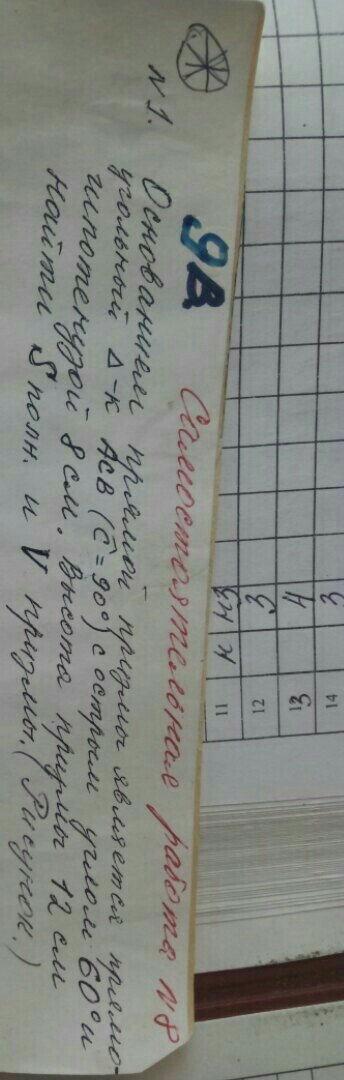 9В Самостоятельная работа N 8
N 1. Основанием прямой призмы является прямо-
угольный Δ-к ACB (C=90°) с острым углом 60° и
гипотенузой 8 см. Высота призмы 12 см
Найти Sполн. и V призмы. (Рисунок.)
11
12 3
13 4
14 3